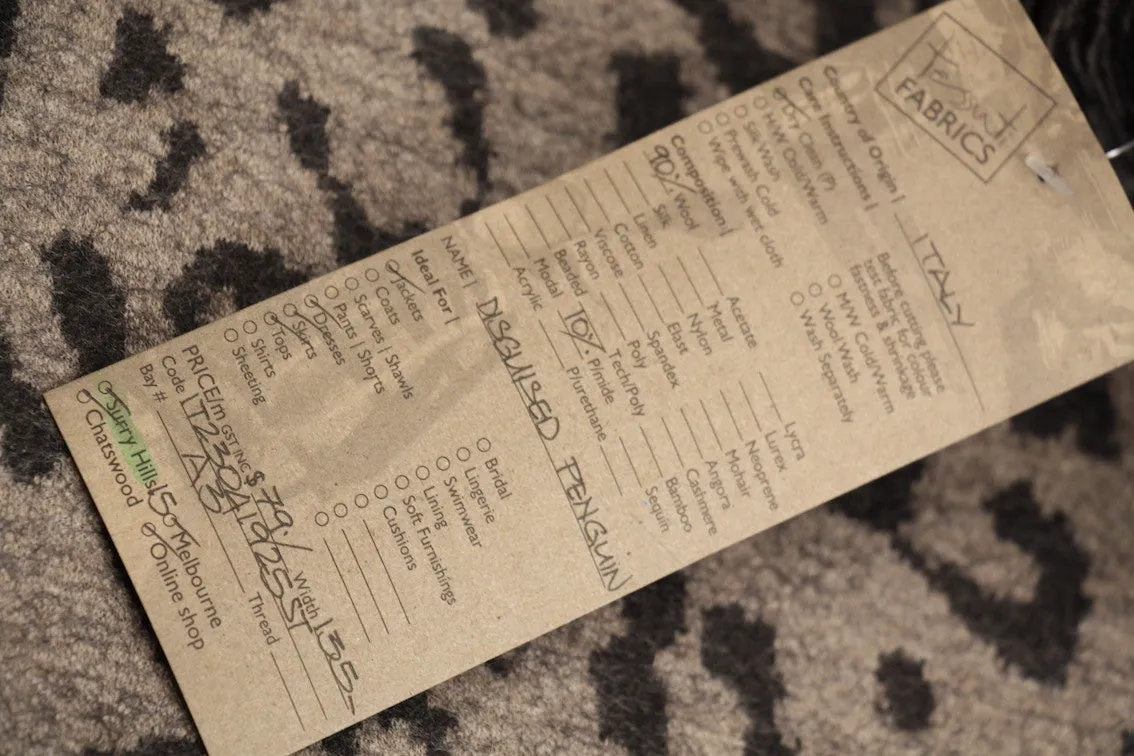 FABRICS
Country of Origin | ITALY
Care Instructions |
Dry Clean (P)
H/W Cold/Warm
Silk Wash
Prewash Cold
Wipe with wet cloth
Before cutting please
test fabric for colour
fastness & shrinkage
M/W Cold/Warm
Wool Wash
Wash Separately
Composition |
90% Wool
Silk
Linen
Cotton
Viscose
Rayon
Beaded
Modal
Acrylic
Acetate
Metal
Nylon
Elast
Spandex
Poly
Tech/Poly
10% P/mide
P/urethane
Lycra
Lurex
Neoprene
Mohair
Angora
Cashmere
Bamboo
Sequin
NAME | DISGUISED PENGUIN
Ideal For |
Jackets
Coats
Scarves | Shawls
Pants | Shorts
Dresses
Skirts
Tops
Shirts
Sheeting
Bridal
Lingerie
Swimwear
Lining
Soft Furnishings
Cushions
PRICE/m GST INC $ 79/ Width 135
Code IT230A1925ST
Bay # A3 Thread
Surry Hills 150 Melbourne
Chatswood Online shop